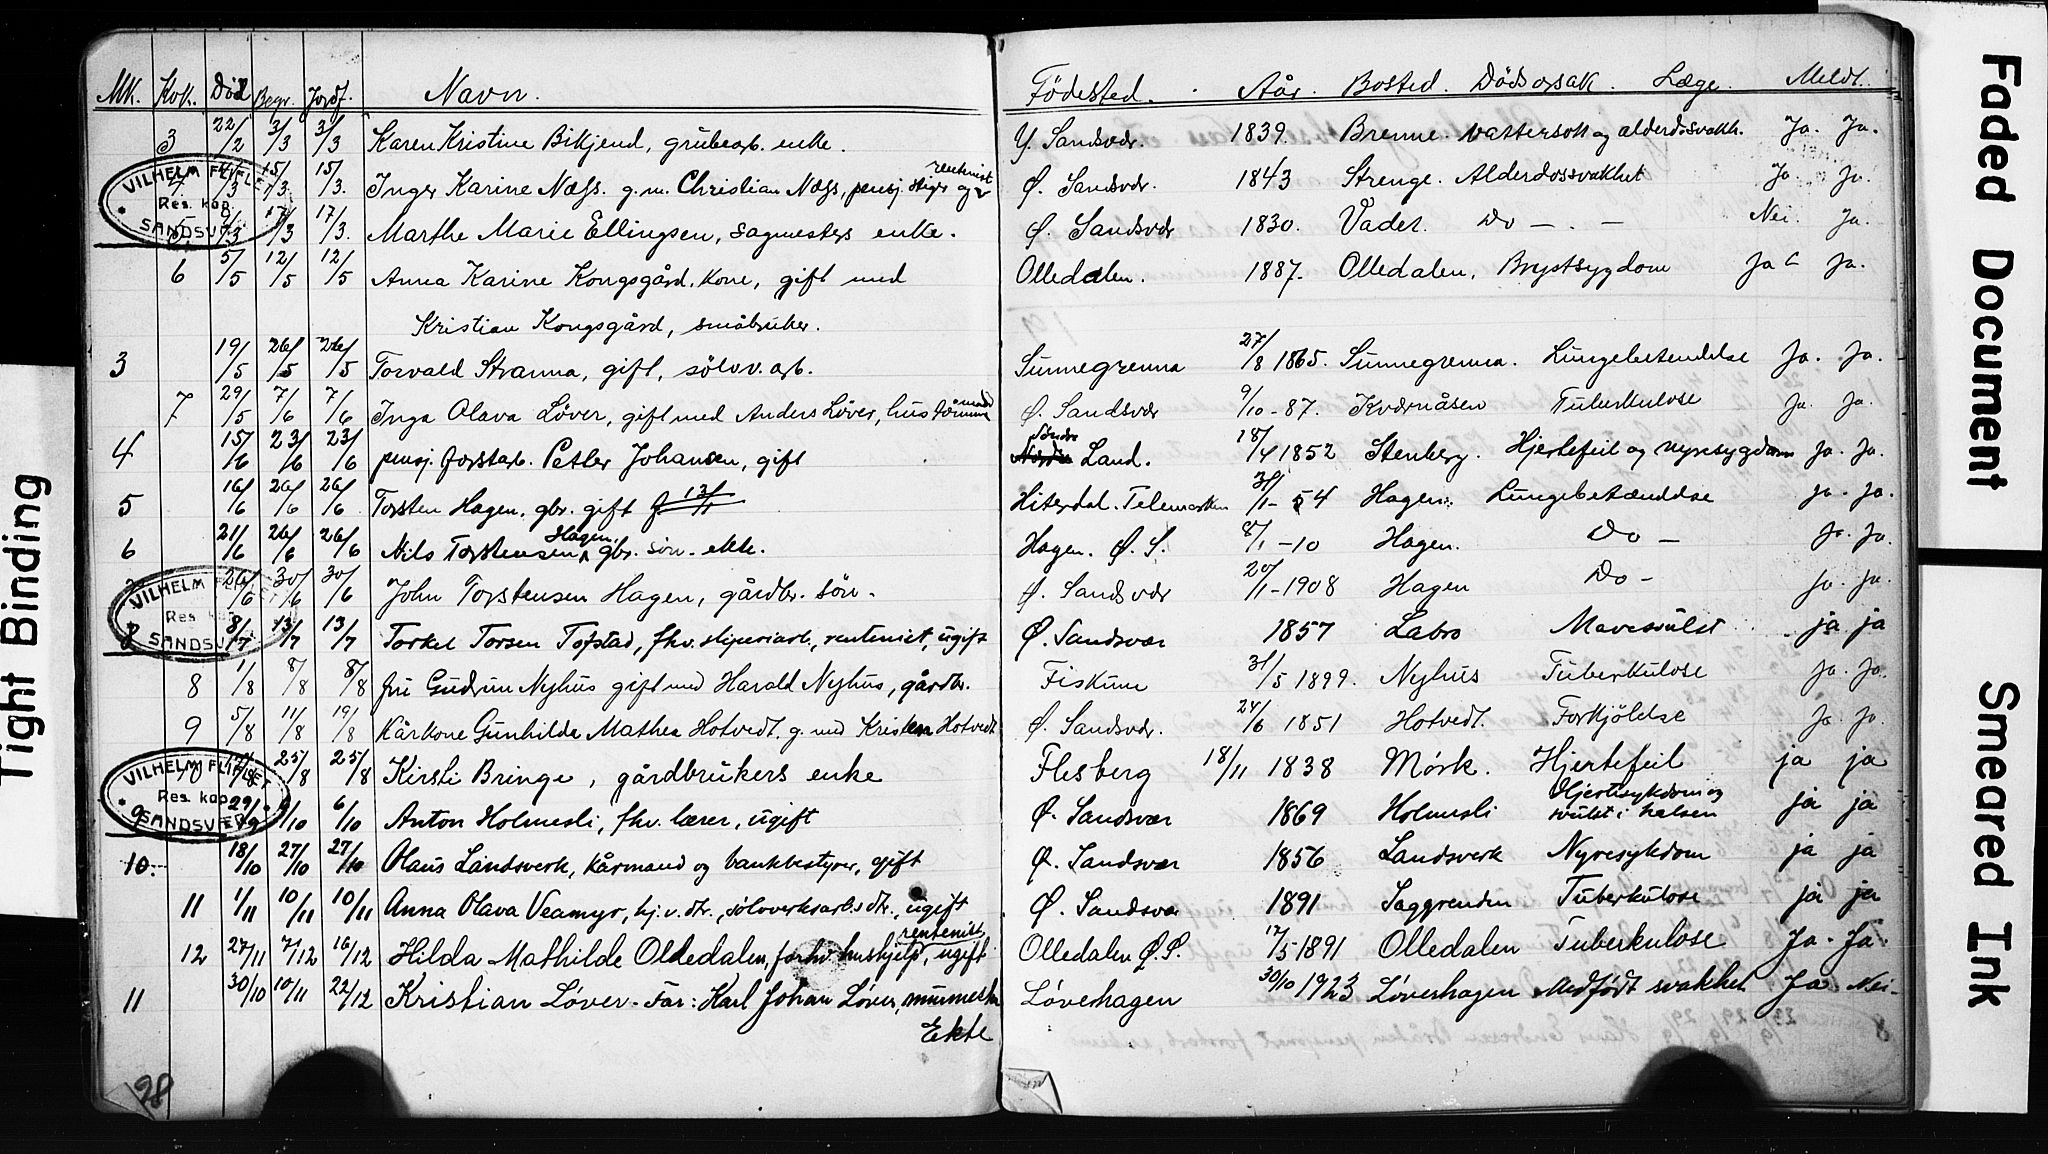 MK. Kvk. Död Begr. Jordf. Navn. Födested. Aår. Bosted. Dödsorsak. Læge. Meldt.
3 22/2 3/3 3/3 Karen Kristine Bikjend, grubearb. enke. Y. Sandsvær. 1839. Brenne. Vattersott og alderdosvakh. Ja. Ja.
rentenist
4 4/3 15/3 15/3. Inger Karine Næss. g. m. Christian Næss, pensj. stiger og Ø. Sandsvær. 1843 Strenge. Alderdossvakhet Ja. Ja.
5. 9/3 17/3 17/3. Marthe Marie Ellingsen, sagmesters enke. Ø. Sandsvær 1830. Vader. Do — . — Nei. Ja.
6 5/5 12/5 12/5 Anna Karine Kongsgård, kone, gift med Olledalen. 1887. Olledalen, Brystsygdom Ja Ja.
Kristian Kongsgård, småbruker.
3 19/5 26/5 26/5 Torvald Stranna, gift, sölvv. arb. Sunnegrenna 27/8 1865. Sunnegrenna. Lungebetendelse Ja. Ja.
7 29/5 7/6 7/6 Inga Olava Löver, gift med Anders Löver, hustömmermand Ø. Sandsvær 9/10 - 87. Kværnåsen Tuberkulose Ja. Ja.
4 15/6 23/6 23/6 pensj. forstarb. Petter Johansen, gift Söndre Land. 18/4 1852 Stenberg. Hjertefeil og nyresygdom Ja. Ja.
5 16/6 26/6 26/6 Torsten Hagen, gbr. gift f. 13/1 Hiterdal. Telemarken 31/1 - 54 Hagen. Lungebetænddse Ja. Ja.
6 21/6 26/6 26/6 Nils Torstensen Hagen, gbr. sön. ekte. Hagen. Ø. S. 8/1 - 10 Hagen. Do — Ja. Ja.
26/6 30/6 30/6 John Torstensen Hagen, gårdbr. sön. Ø. Sandsvær 20/1 - 1908 Hagen Do - Ja. Ja.
8 8/7 13/7 13/7 Torkel Torsen Tofstad, fhv. sliperiarb., rentenist, ugift Ø. Sandsvær 1857 Labro Mavesvulst ja ja
8 1/8 8/8 8/8 fru Gudrun Nyhus gift med Harald Nyhus, gårdbr. Fiskum 31/5 1899. Nyhus Tuberkulose Ja. Ja.
9 5/8 11/8 19/8 Kårkone Gunhilda Mathea Hotvedt. g. med Kristen Hotvedt Ø. Sandsvær. 24/6 1851 Hotvedt. Forkjölelse Ja. Ja.
10 25/8 25/8 Kirsti Bringe, gårdbrukers enke Flesberg 18/11 1838 Mörk. Hjertefeil ja ja
9 29/9 6/10 6/10 Anton Holmesli, fhv. lærer, ugift Ø. Sandsvær 1869 Holmesli Hjertesykdom og svulst i halsen ja ja
10. 18/10 27/10 27/10 Olaus Landsverk, kårmand og bankbestyrer, gift Ø. Sandsvær 1856 Landsverk Nyresykdom ja ja
11 1/11 10/11 10/11 Anna Olava Veamyr, hj. v. dtr., sölvverksarb.s dtr., ugift Ø. Sandsvær 1891 Saggrenden Tuberkulose ja ja
rentenist
12 27/11 7/12 16/12 Hilda Mathilde Olledalen, forhv. hushjelp, ugift Olledalen Ø. S. 17/5 1891 Olledalen Tuberkulose Ja. Ja.
11 30/10 10/11 22/12 Kristian Löver. Far: Karl Johan Löver, murmester Löverhagen 30/10 1923 Löverhagen Medfödt svakhet Ja Nei
Ekte
28
VILHELM FLIFLET
Res. kap.
SANDSVÆR
VILHELM FLIFLET
Res. kap.
SANDSVÆR
VILHELM FLIFLET
Res. kap.
SANDSVÆR
Tight Binding
Faded Document
Smeared Ink